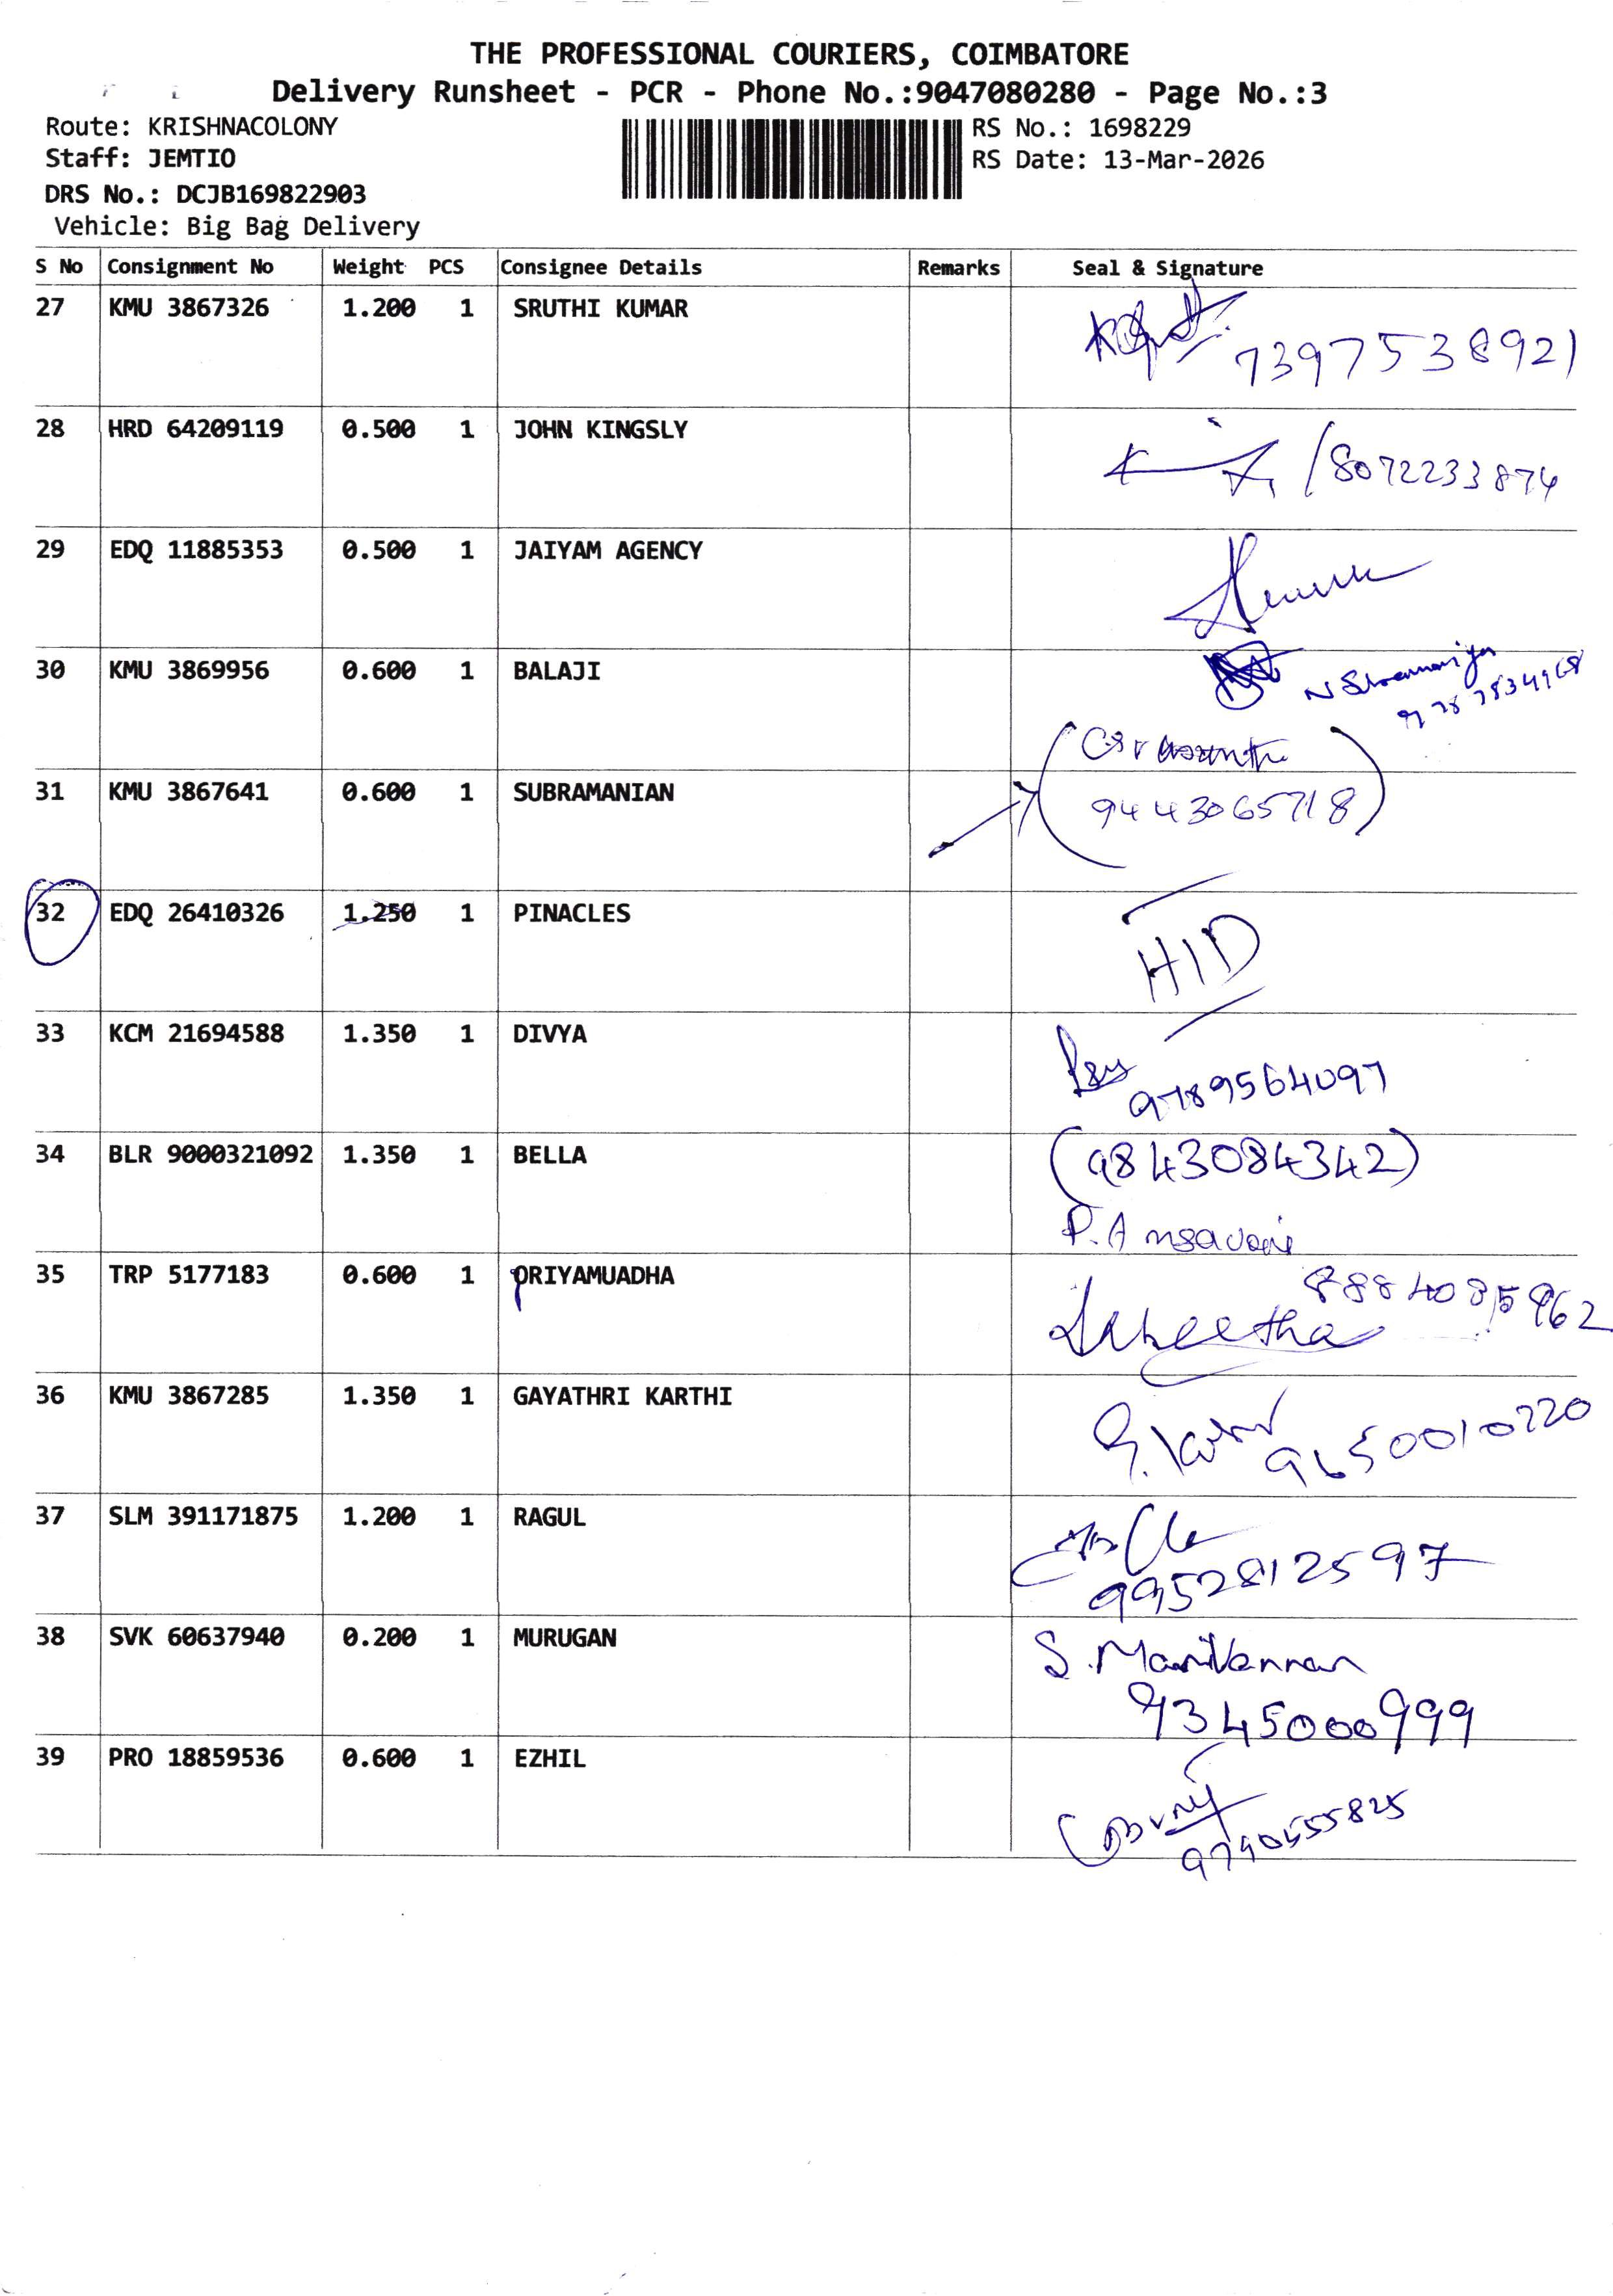 THE PROFESSIONAL COURIERS, COIMBATORE
Delivery Runsheet - PCR - Phone No.:9047080280 - Page No.:3
Route: KRISHNACOLONY
Staff: JEMTIO
DRS No.: DCJB169822903
Vehicle: Big Bag Delivery
RS No.: 1698229
RS Date: 13-Mar-2026
S No Consignment No Weight PCS Consignee Details Remarks Seal & Signature
27 KMU 3867326 1.200 1 SRUTHI KUMAR
7397538921
28 HRD 64209119 0.500 1 JOHN KINGSLY
/8072233874
29 EDQ 11885353 0.500 1 JAIYAM AGENCY
30 KMU 3869956 0.600 1 BALAJI
31 KMU 3867641 0.600 1 SUBRAMANIAN
9443065718
32 EDQ 26410326 1.250 1 PINACLES
HID
33 KCM 21694588 1.350 1 DIVYA
9789564097
34 BLR 9000321092 1.350 1 BELLA
(9843084342)
35 TRP 5177183 0.600 1 PRIYAMUADHA
36 KMU 3867285 1.350 1 GAYATHRI KARTHI
37 SLM 391171875 1.200 1 RAGUL
9952812597
38 SVK 60637940 0.200 1 MURUGAN
S. Manivannan
9345000999
39 PRO 18859536 0.600 1 EZHIL
9790555825